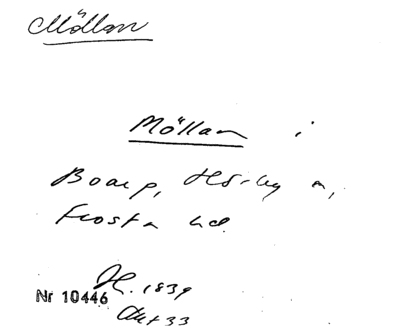 Möllan
Möllan i
Boarp, Hörby n,
Frosta hd.
H. 1839
Nr 10446
Akt 33